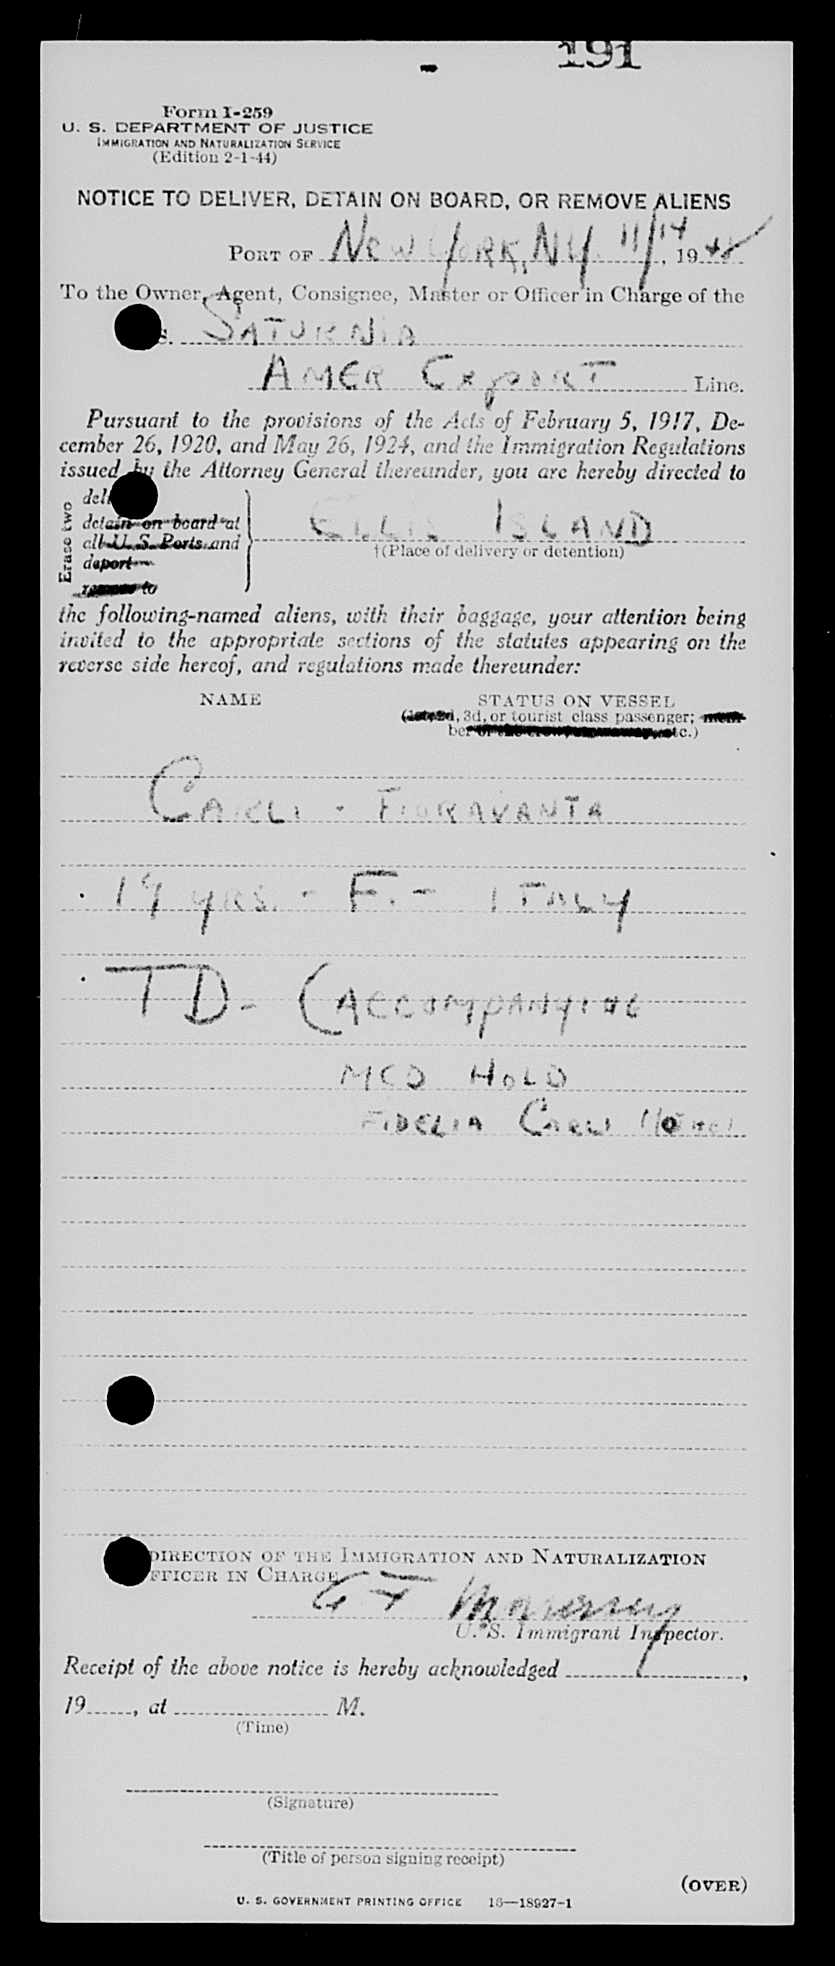 191
Form I-259
U. S. DEPARTMENT OF JUSTICE
IMMIGRATION AND NATURALIZATION SERVICE
(Edition 2-1-44)
NOTICE TO DELIVER, DETAIN ON BOARD, OR REMOVE ALIENS
PORT OF NEW YORK, NY. 11/14, 1948
To the Owner, Agent, Consignee, Master or Officer in Charge of the
S. SATURNIA
AMER EXPORT Line.
Pursuant to the provisions of the Acts of February 5, 1917, De-
cember 26, 1920, and May 26, 1924, and the Immigration Regulations
issued by the Attorney General thereunder, you are hereby directed to
Erase two
detain on board at
all U. S. Ports and
deport
to
ELLIS ISLAND
†(Place of delivery or detention)
the following-named aliens, with their baggage, your attention being
invited to the appropriate sections of the statutes appearing on the
reverse side hereof, and regulations made thereunder:
NAME STATUS ON VESSEL
3d, or tourist class passenger; mem-
ber of the crew, etc.)
CARLI - FIORAVANTA
19 YRS. - F. - ITALY
TD - (ACCOMPANYING
MCD HOLD
FIDELIA CARLI
DIRECTION OF THE IMMIGRATION AND NATURALIZATION
OFFICER IN CHARGE
U. S. Immigrant Inspector.
Receipt of the above notice is hereby acknowledged ,
19 , at M.
(Time)
(Signature)
(Title of person signing receipt)
(OVER)
U. S. GOVERNMENT PRINTING OFFICE 16—18927-1